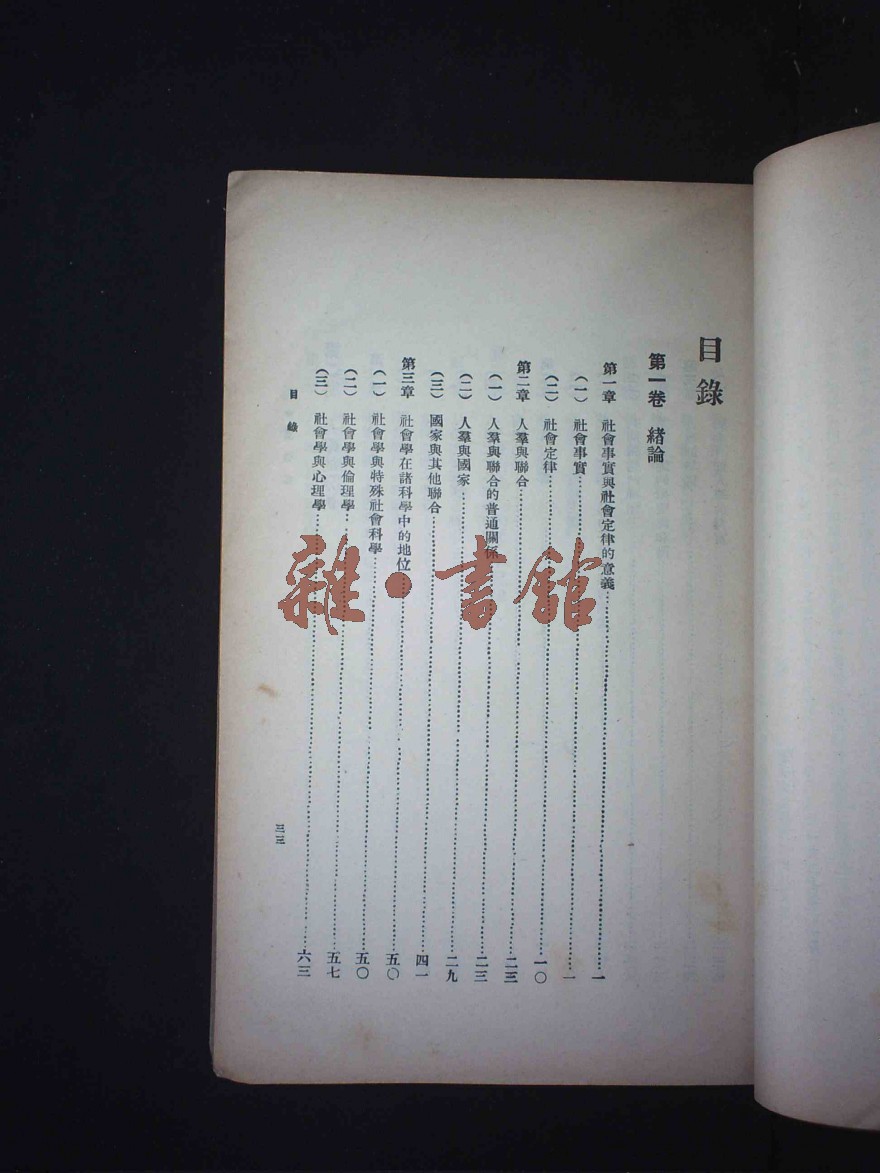 目錄
第一卷 緒論
第一章 社會事實與社會定律的意義……一
(一) 社會事實……一
(二) 社會定律……一〇
第二章 人羣與聯合……二三
(一) 人羣與聯合的普通關係……二三
(二) 人羣與國家……二九
(三) 國家與其他聯合……四一
第三章 社會學在諸科學中的地位……五〇
(一) 社會學與特殊社會科學……五〇
(二) 社會學與倫理學……五七
(三) 社會學與心理學……六三
目錄
三三
雜·書館